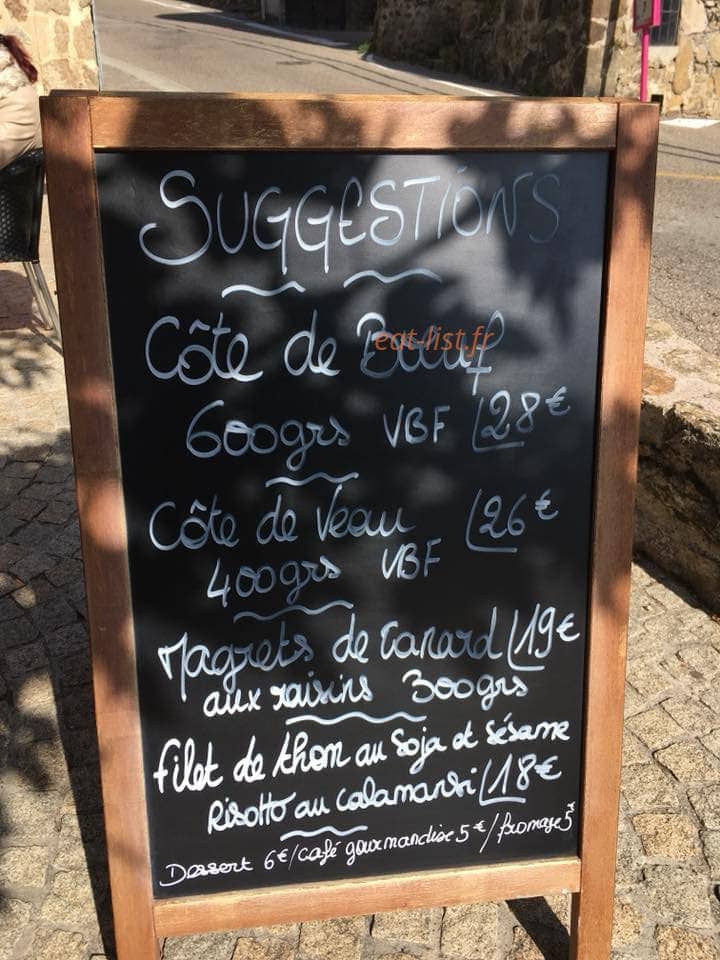 SUGGESTIONS
Côte de Bœuf
eat-list.fr
600grs VBF 28€
Côte de Veau 26€
400grs VBF
Magrets de Canard 19€
aux raisins 300grs
filet de thon au Soja et Sésame
Risotto au calamansi 18€
Dessert 6€/café gourmandise 5€/fromage 5€